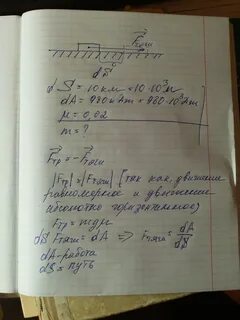 F тяги
dS
dS = 10 км = 10·10³м
dA = 980 кДж = 980·10³Дж
μ = 0,02
m = ?
Fтр = -Fтяги
|Fтр| = |Fтяги| (так как, движение
равномерное и движение
абсолютно горизонтальное)
Fтр = mgμ
dS Fтяги = dA ⇒ Fтяги = dA/dS
dA - работа
dS = путь